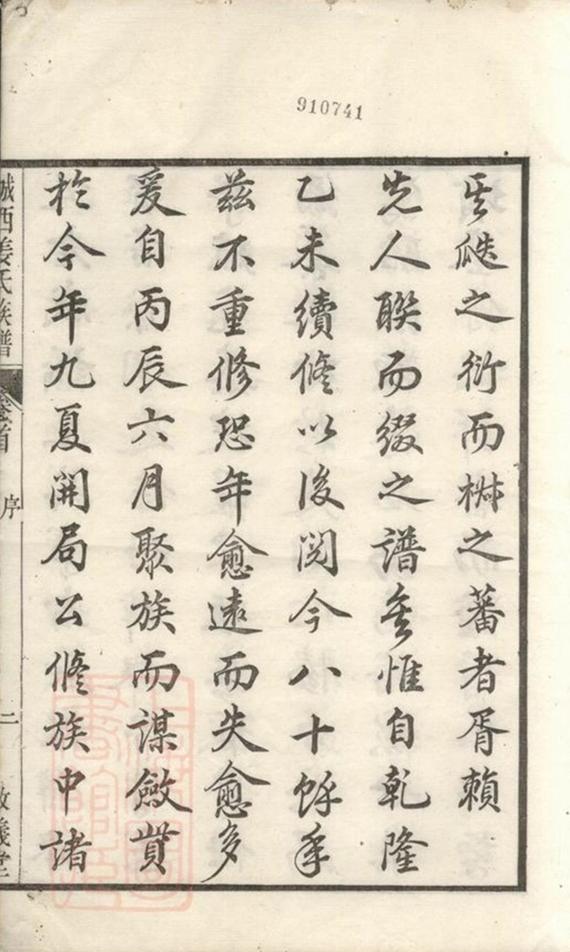 910741
其瓞之衍而椒之蕃者胥賴
先人聯而綴之譜矣惟自乾隆
乙未續修以後閱今八十餘年
茲不重修恐年愈遠而失愈多
爰自丙辰六月聚族而謀斂貲
於今年九夏開局公修族中諸
城西姜氏族譜 卷首 序 二 敦義堂